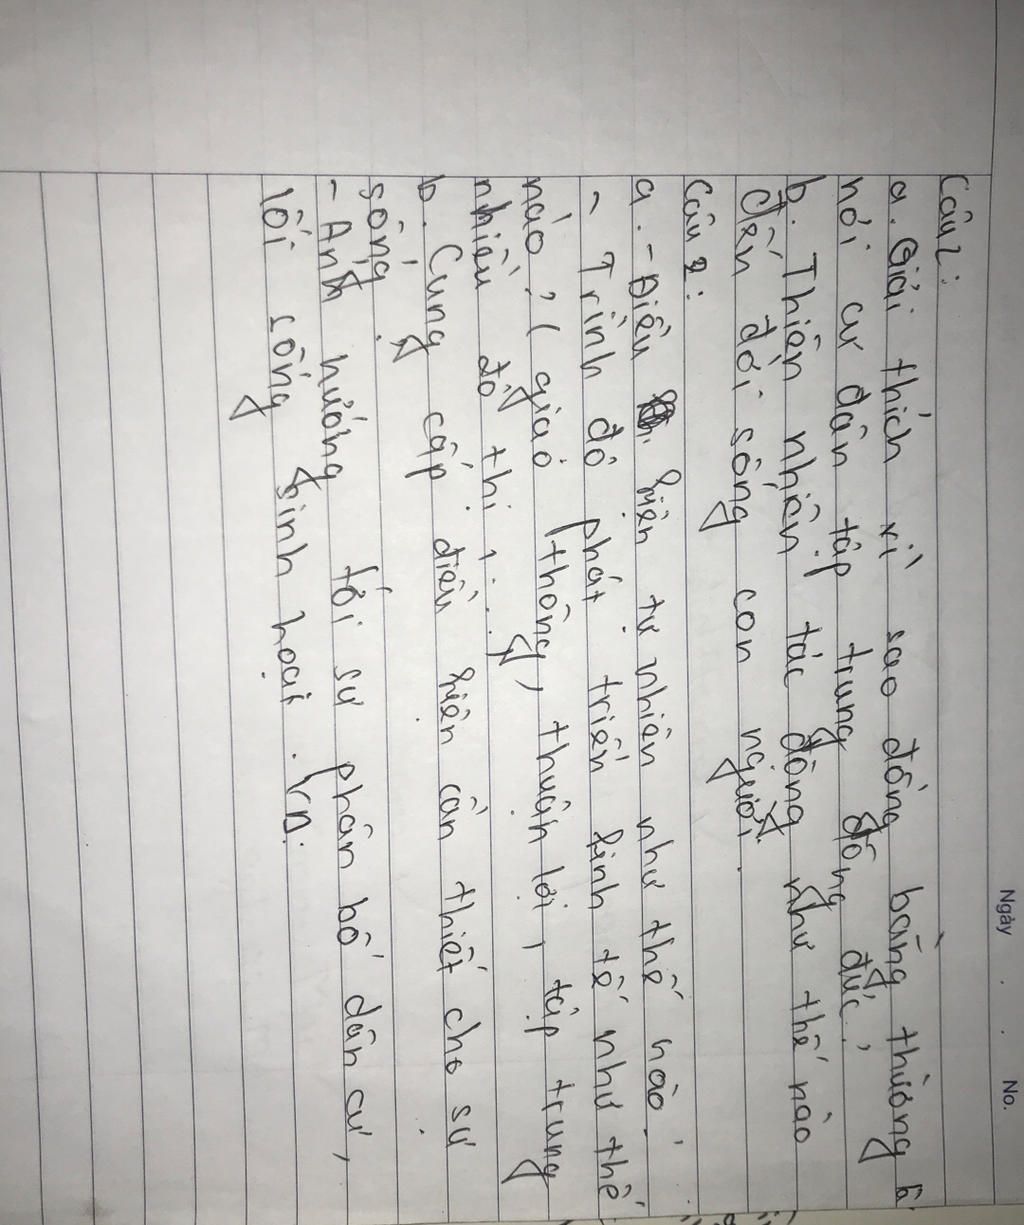 Ngày . . No.
Câu 2:
a. Giải thích vì sao đồng bằng thường là
nơi cư dân tập trung đông đúc?
b. Thiên nhiên tác động như thế nào
đến đời sống con người.
Câu 2:
a. - Điều kiện tự nhiên như thế nào.
- Trình độ phát triển kinh tế như thế
nào? (giao thông, thuận lợi, tập trung
nhiều đô thị...)
b. Cung cấp điều kiện cần thiết cho sự
sống
- Ảnh hưởng tới sự phân bố dân cư,
lối sống sinh hoạt. VD: